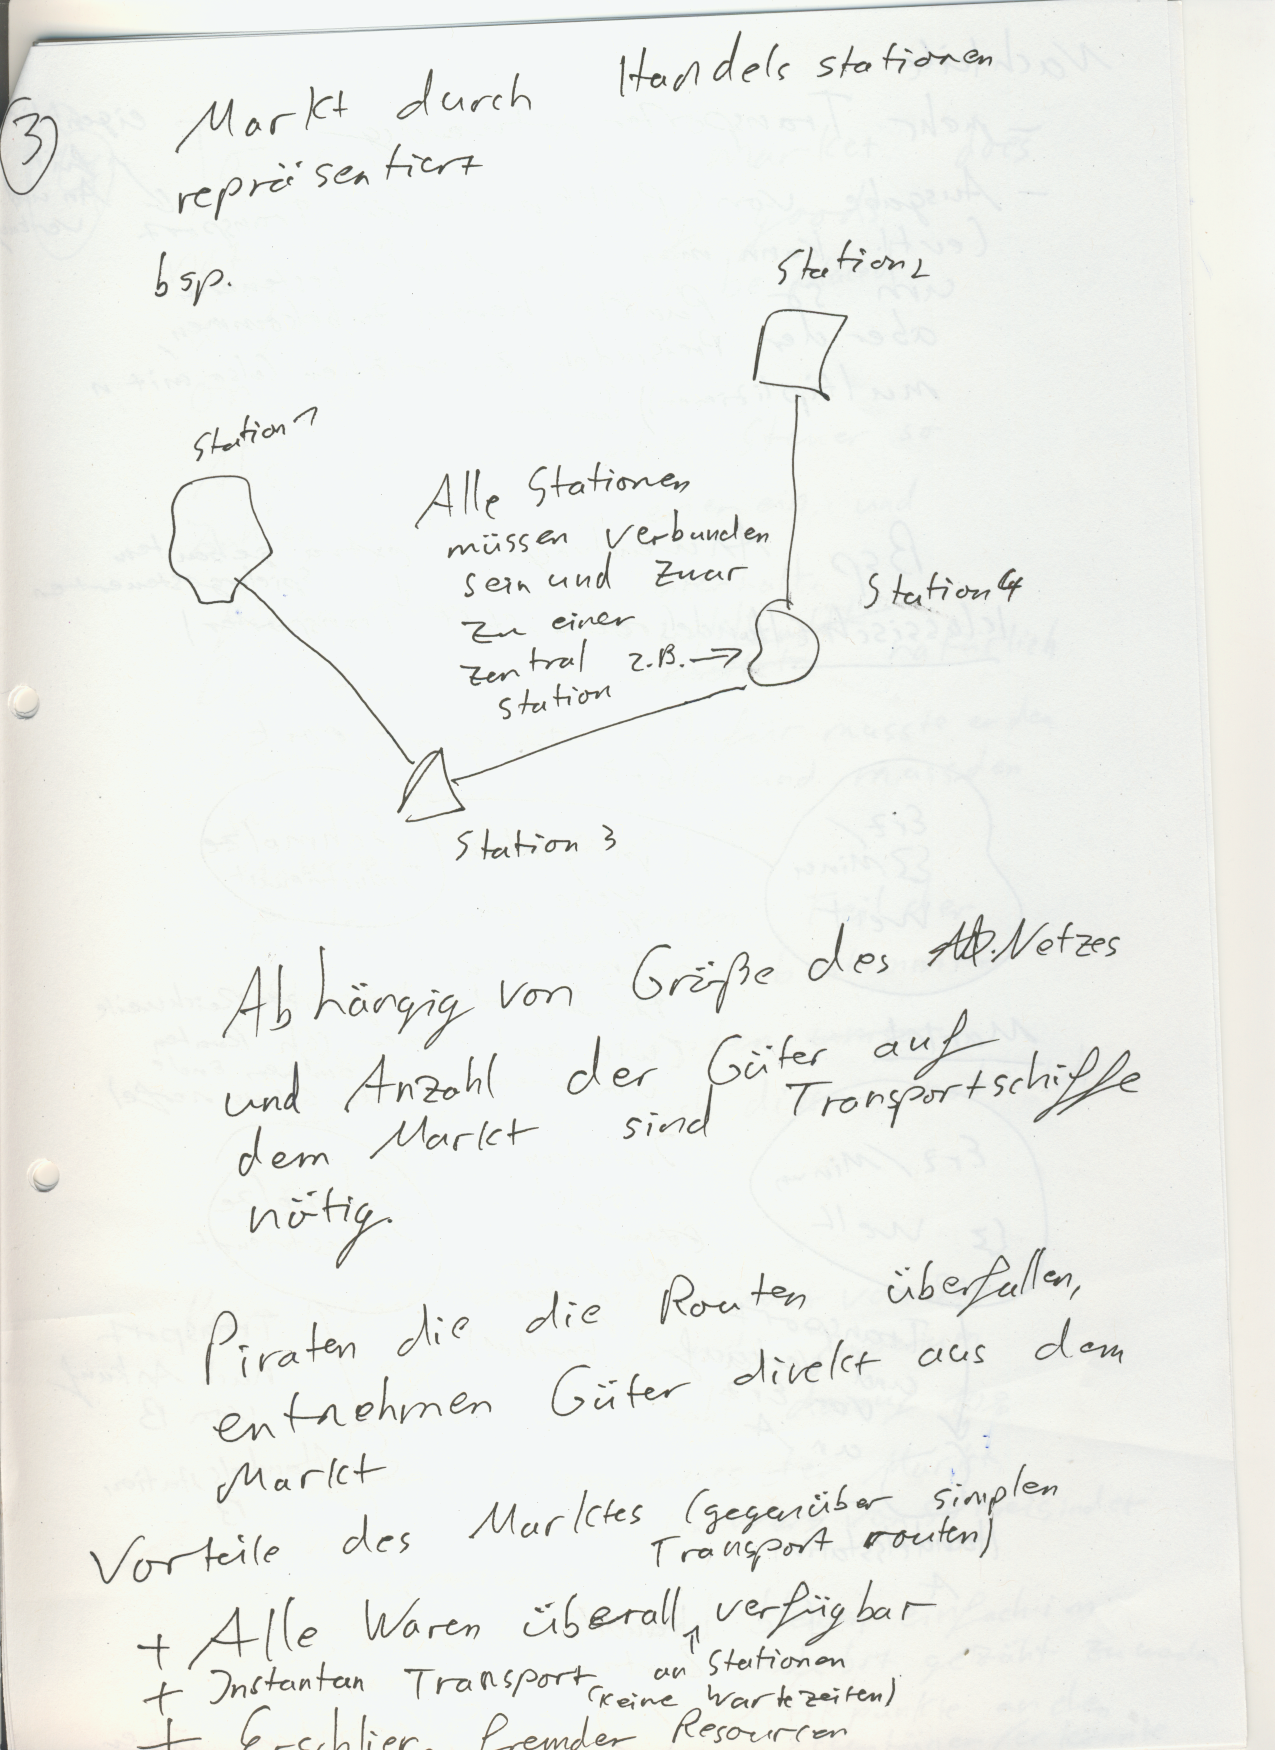 3)
Markt durch Handels stationen
repräsentiert
bsp.
Station 2
Station 1
Alle Stationen
müssen verbunden
sein und zwar
zu einer
zentral z.B. →
station
Station 4
Station 3
Abhängig von Größe des Netzes
und Anzahl der Güter auf
dem Markt sind Transportschiffe
nötig.
Piraten die die Routen überfallen,
entnehmen Güter direkt aus dem
Markt
Vorteile des Marktes (gegenüber simplen
Transport routen)
+ Alle Waren überall verfügbar
↑ an Stationen
+ Instantan Transport (keine Wartezeiten)
+ fremder Resourcen